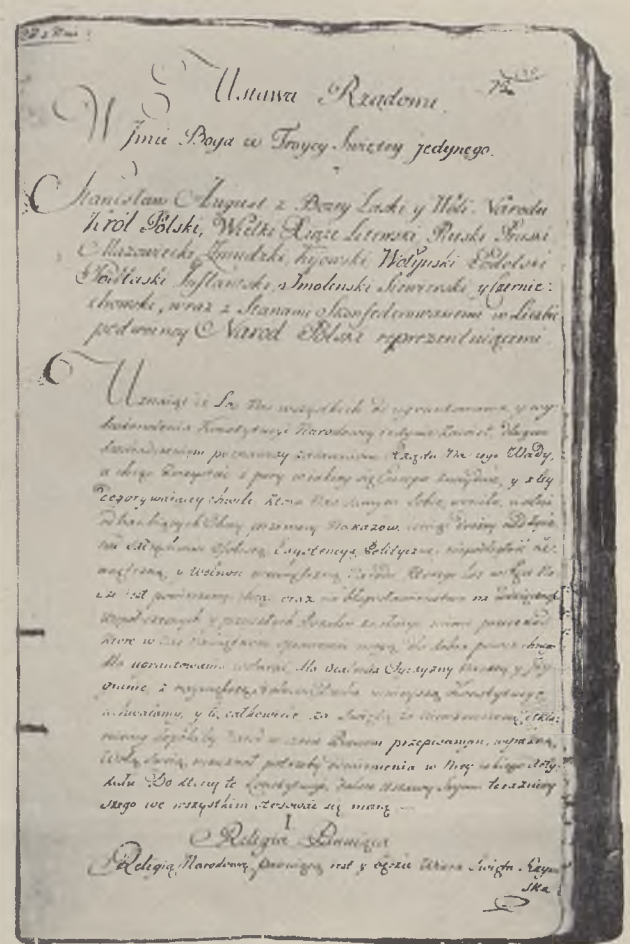 Ustawa Rządowa.
W Jmie Boga w Troycy Swiętey jedynego.
Stanisław August z Bożey Łaski y Woli Narodu
Król Polski, Wielki Xiąże Litewski, Ruski Pruski
Mazowiecki Żmudzki, Kijowski Wołynski Podolski
Podlaski Inflantski, Smolenski Siewierski y Czernie:
chowski, wraz z Stanami Skonfederowanemi w Liczbie
podwoyney Narod Polski reprezentuiącemi
Uznaiąc iż Los Nas wszystkich od ugruntowania y wy:
doskonalenia Konstytucyi Narodowey iedynie zawisł, długim
doswiadczeniem poznawszy zadawnione Rządu Na:ego Wady,
a chcąc korzystać z pory w iakiey się Europa znayduie, y z tey
dogorywaiącey chwili, ktora Nas samym sobie wrociła, wolni
od hanbiących Obcey przemocy Nakazow, ceniąc drożey nad życie
Exystencyą Polityczną, niepodległość ze:
wnętrzną y Wolnosc wewnętrzną Narodu, ktorego Los w Ręce Na:
sze iest powierzony, chcąc oraz na błogosławienstwo na wdzięczność
wspołczesnych y przyszłych Pokolen zasłużyć mimo przeszkod
ktore w Nas namiętnosci sprawować mogą dla dobra powszechnego
dla ugruntowania wolnosci, dla Ocalenia Oyczyzny Naszey y Jey
granic, z naywiększą stałoscią ducha ninieyszą Konstytucyą
uchwalamy, y tę całkowicie za Swiętą, za niewzruszoną dekla:
ruiemy dopokiby Narod w czasie Prawem przepisanym, wyraźną
Wolą Swoią nieuznał potrzeby odmienienia w Niey iakiego Arty:
kułu Do ktorey to Konstytucyi dalsze Ustawy Seymu terazniey
szego we wszystkim stosować się maią
I
Religia Panuiąca
Religią Narodową panuiącą iest y będzie Wiara Swięta Rzym
ska